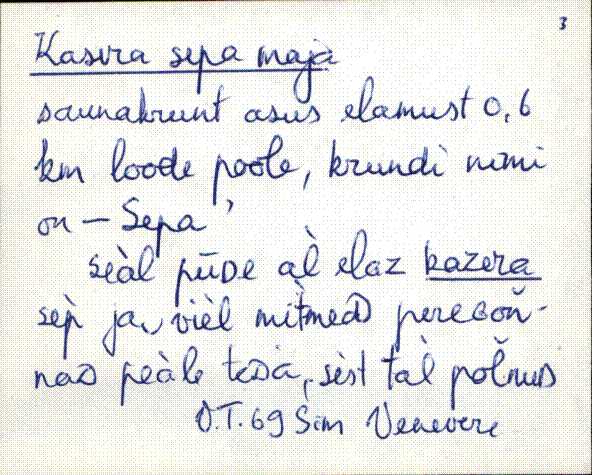 3
Kasera sepa maja
saunakrunt asus elamust 0,6
km loode poole, krundi nimi
on – Sepa
seàl pūDe al̀ elaz kazera
sèp̀ ja, vièl mit̀meD pereGoň-
naD peàle teDa, sèst tal̀ polnuD
O.T. 69 Sim Venevere